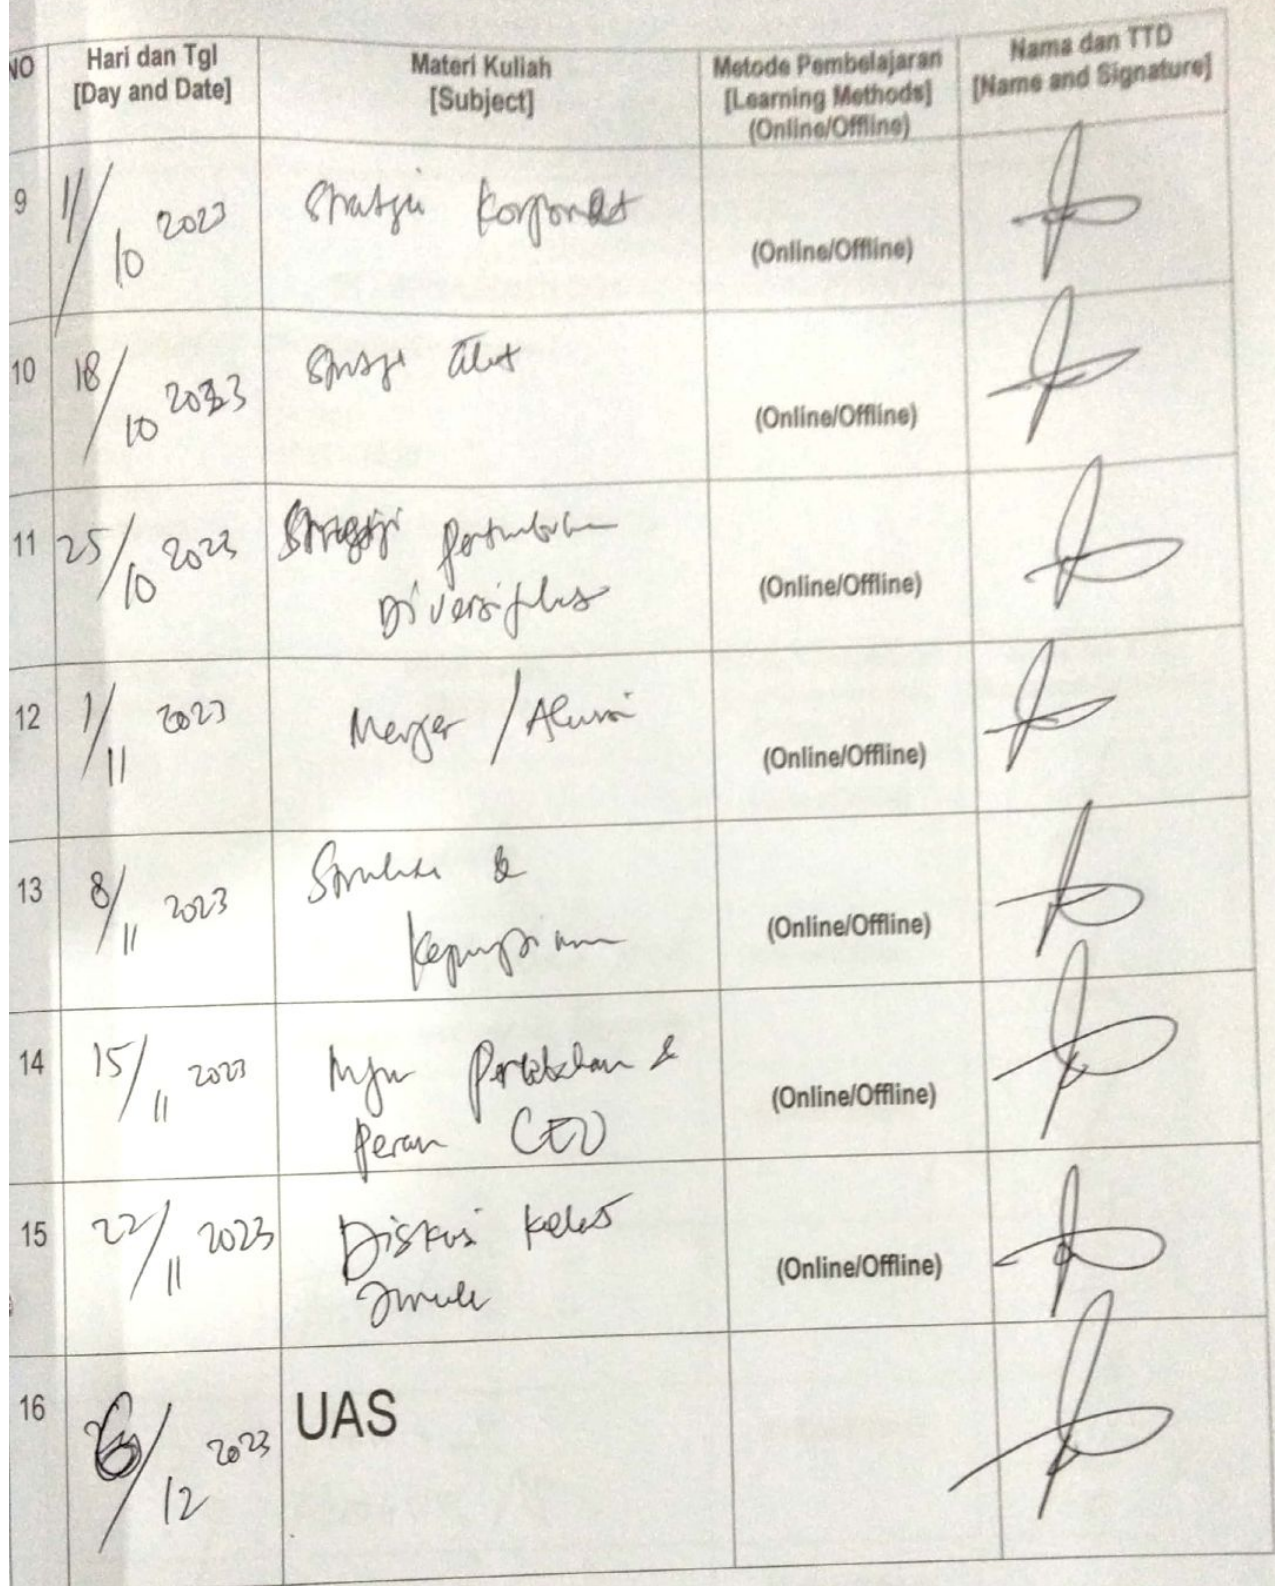 NO
Hari dan Tgl
[Day and Date]
Materi Kuliah
[Subject]
Metode Pembelajaran
[Learning Methods]
(Online/Offline)
Nama dan TTD
[Name and Signature]
9
11/10 2023
Strategi Korporat
(Online/Offline)
10
18/10 2023
(Online/Offline)
11
25/10 2023
Strategi
Diversifikasi
(Online/Offline)
12
1/11 2023
Merger /
(Online/Offline)
13
8/11 2023
&
(Online/Offline)
14
15/11 2023
&
Peran CEO
(Online/Offline)
15
22/11 2023
Diskusi
(Online/Offline)
16
6/12 2023
UAS